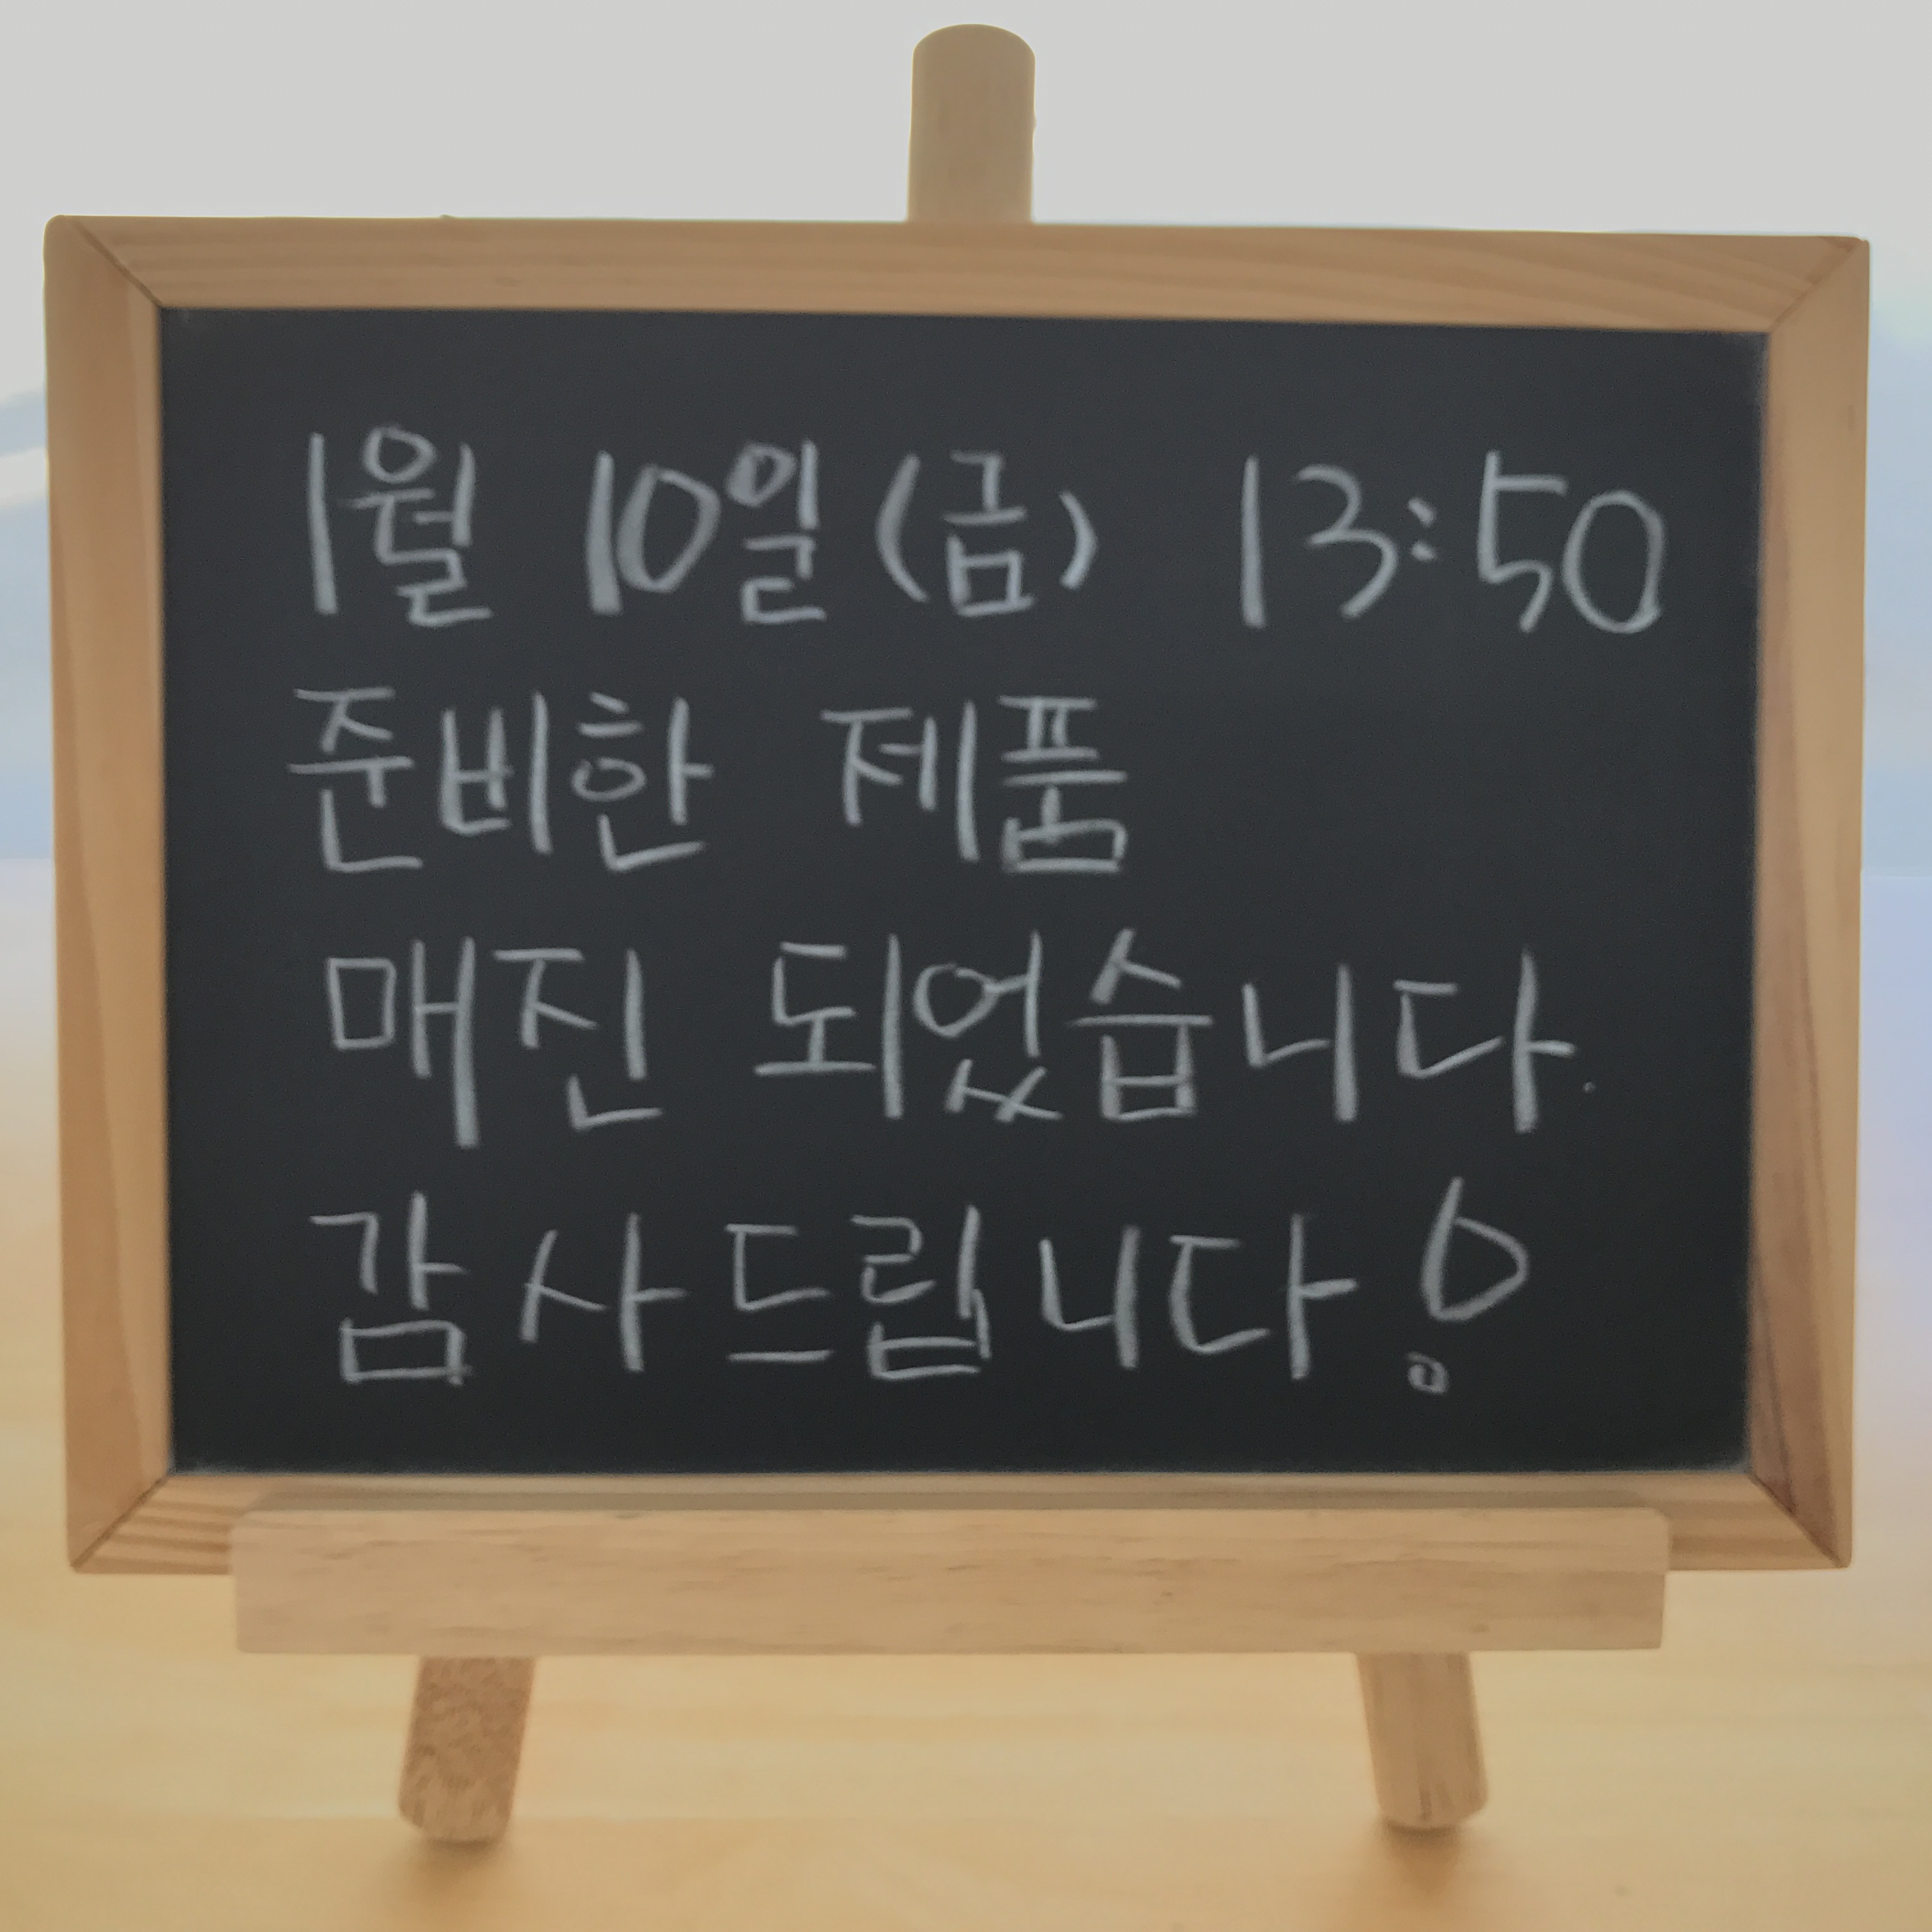 1월 10일(금) 13:50
준비한 제품
매진 되었습니다.
감사드립니다!